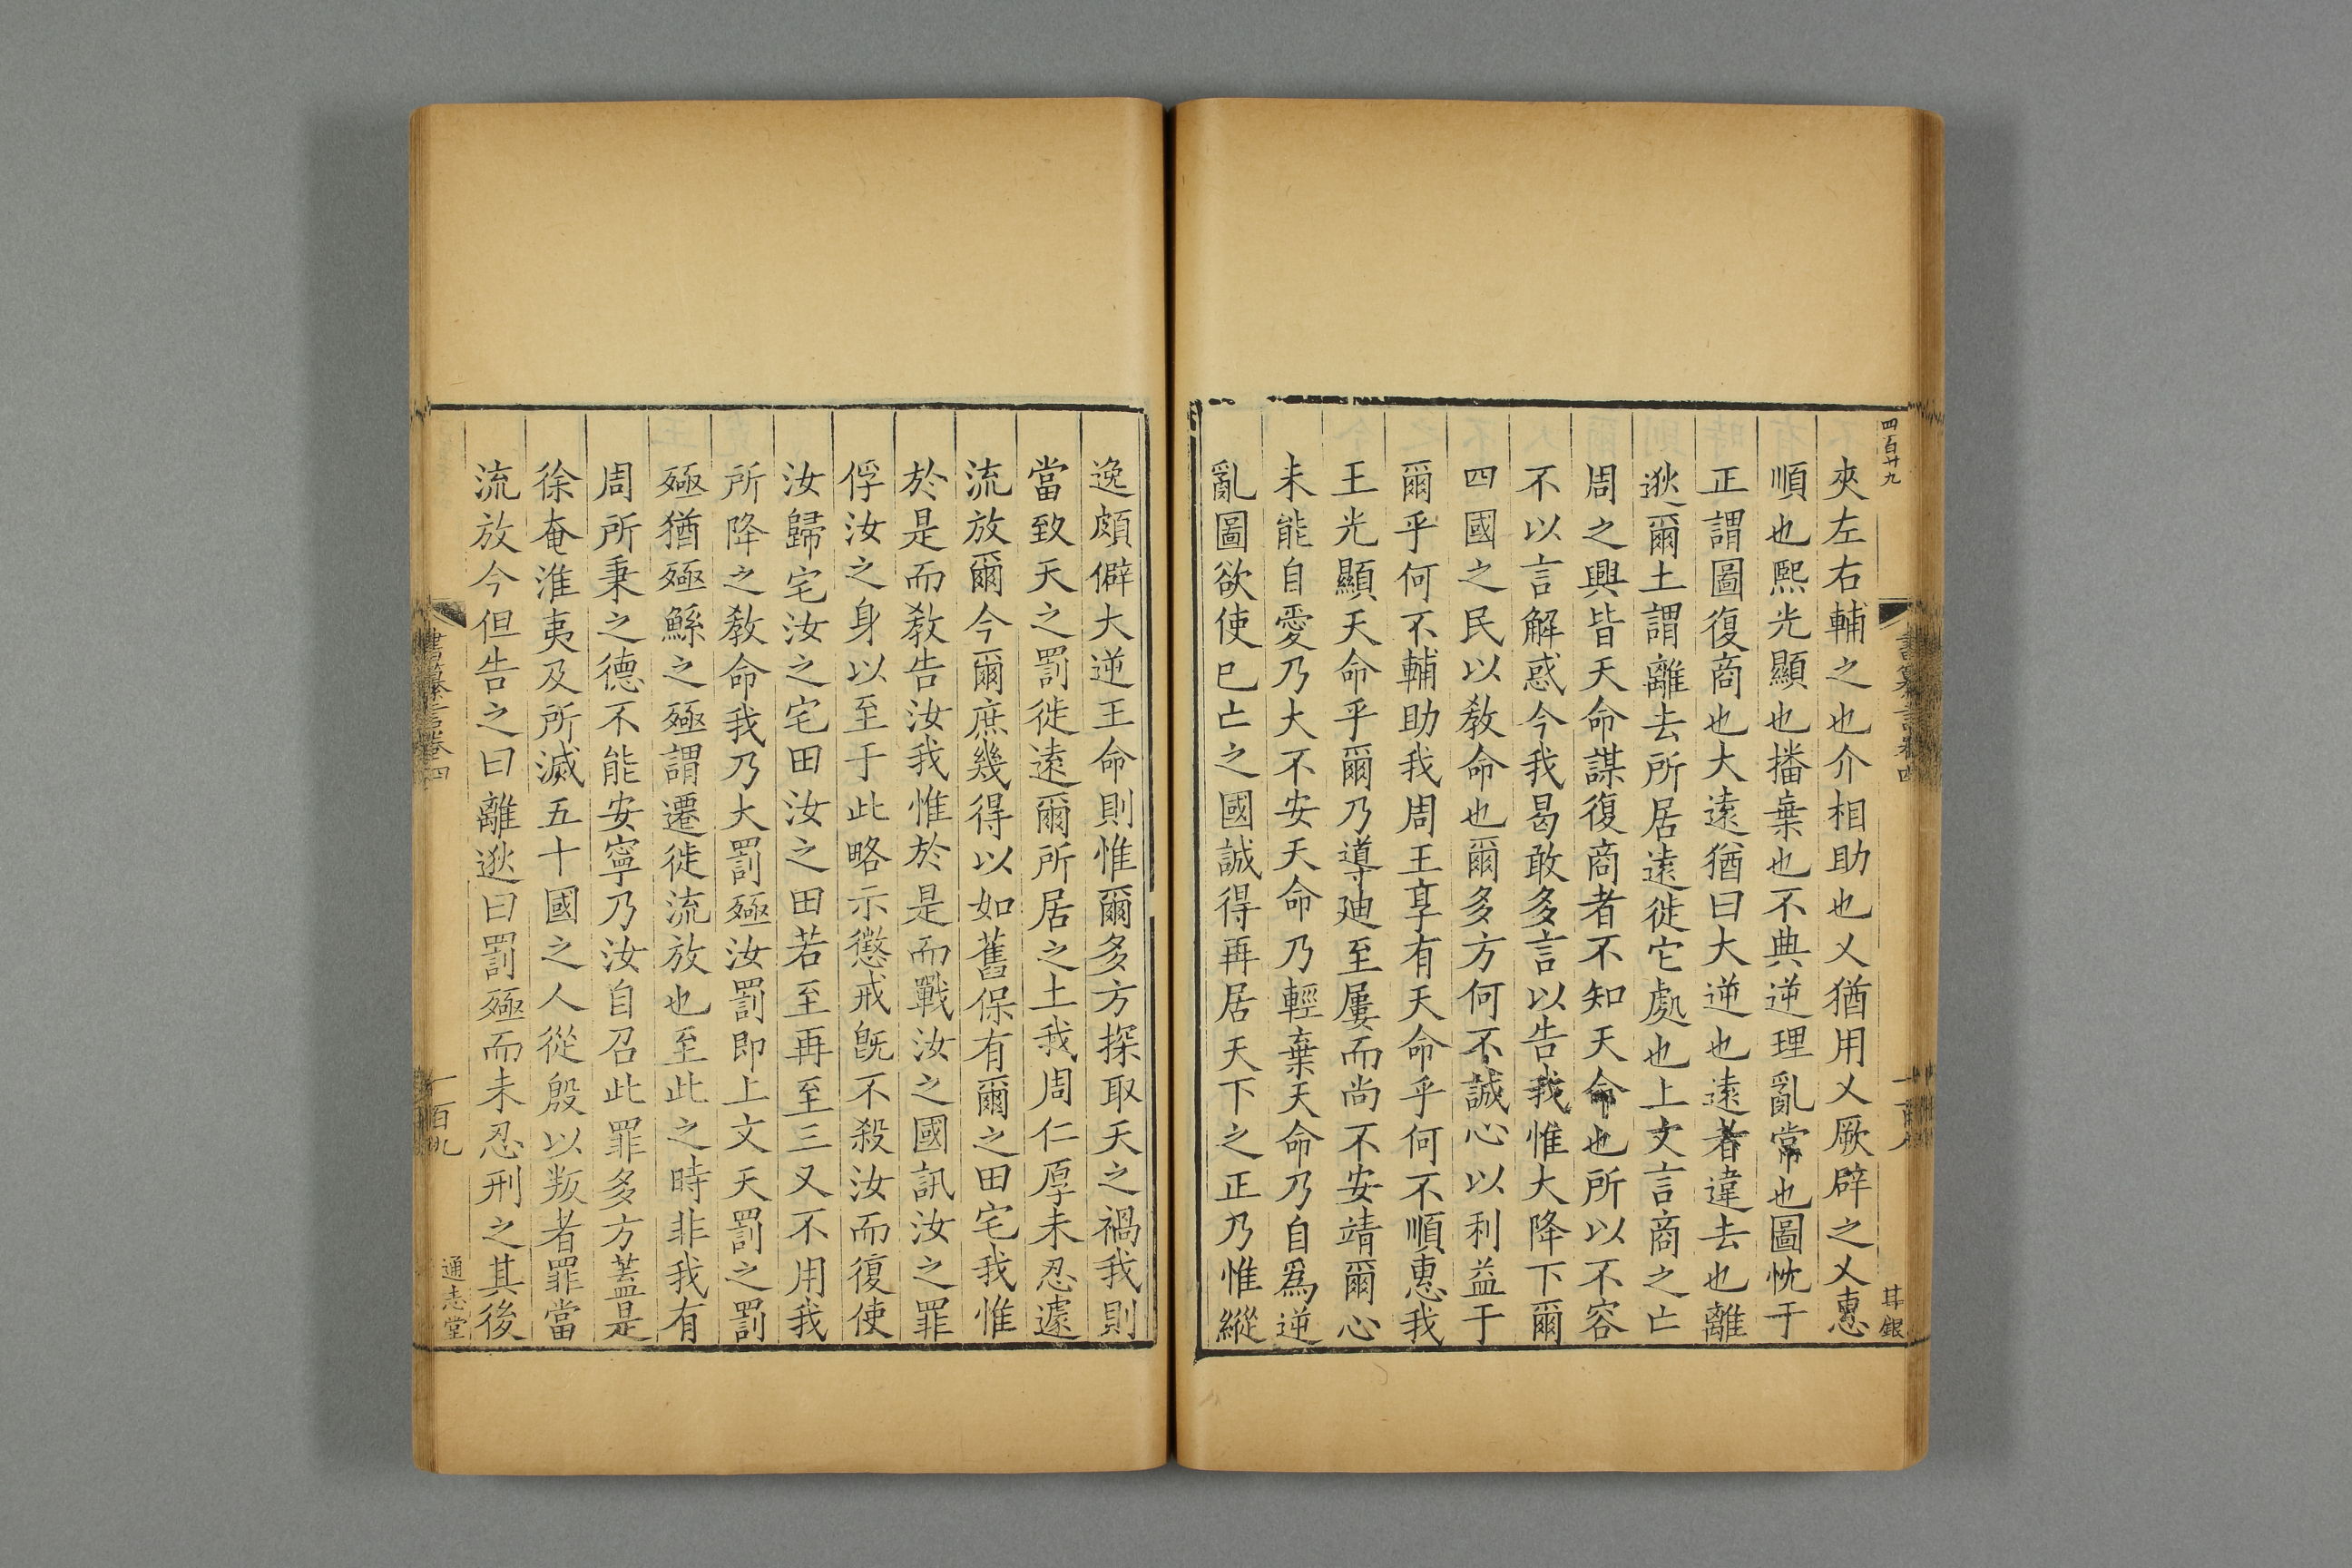 四百廿九
夾左右輔之也介相助也乂猶用乂厥辟之乂惠
順也熙光顯也播棄也不典逆理亂常也圖忱于
正謂圖復商也大遠猶曰大逆也遠者違去也離
逖爾土謂離去所居遠徙它處也上文言商之亡
周之興皆天命謀復商者不知天命也所以不容
不以言解惑今我曷敢多言以告我惟大降下爾
四國之民以教命也爾多方何不誠心以利益于
爾乎何不輔助我周王享有天命乎何不順惠我
王光顯天命乎爾乃導廸至屢而尚不安靖爾心
未能自愛乃大不安天命乃輕棄天命乃自爲逆
亂圖欲使已亡之國誠得再居天下之正乃惟縱
逸頗僻大逆王命則惟爾多方探取天之禍我則
當致天之罰徙遠爾所居之土我周仁厚未忍遽
流放爾今爾庶幾得以如舊保有爾之田宅我惟
於是而教告汝我惟於是而戰汝之國訊汝之罪
俘汝之身以至于此略示懲戒旣不殺汝而復使
汝歸宅汝之宅田汝之田若至再至三又不用我
所降之教命我乃大罰殛汝罰即上文天罰之罰
殛猶殛鯀之殛謂遷徙流放也至此之時非我有
周所秉之德不能安寧乃汝自召此罪多方蓋是
徐奄淮夷及所滅五十國之人從殷以叛者罪當
流放今但告之曰離逖曰罰殛而未忍刑之其後
書纂言卷四
一百九
通志堂